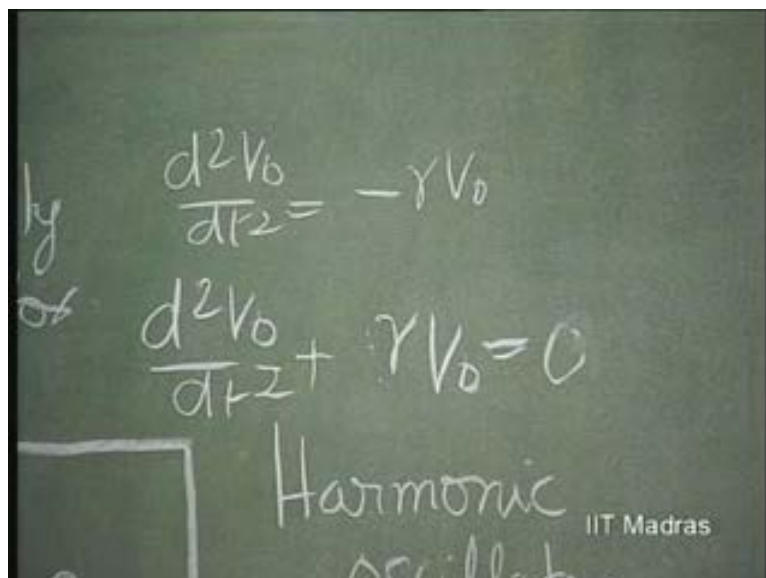 d²V₀/dt² = −γV₀
d²V₀/dt² + γV₀ = 0
Harmonic
IIT Madras